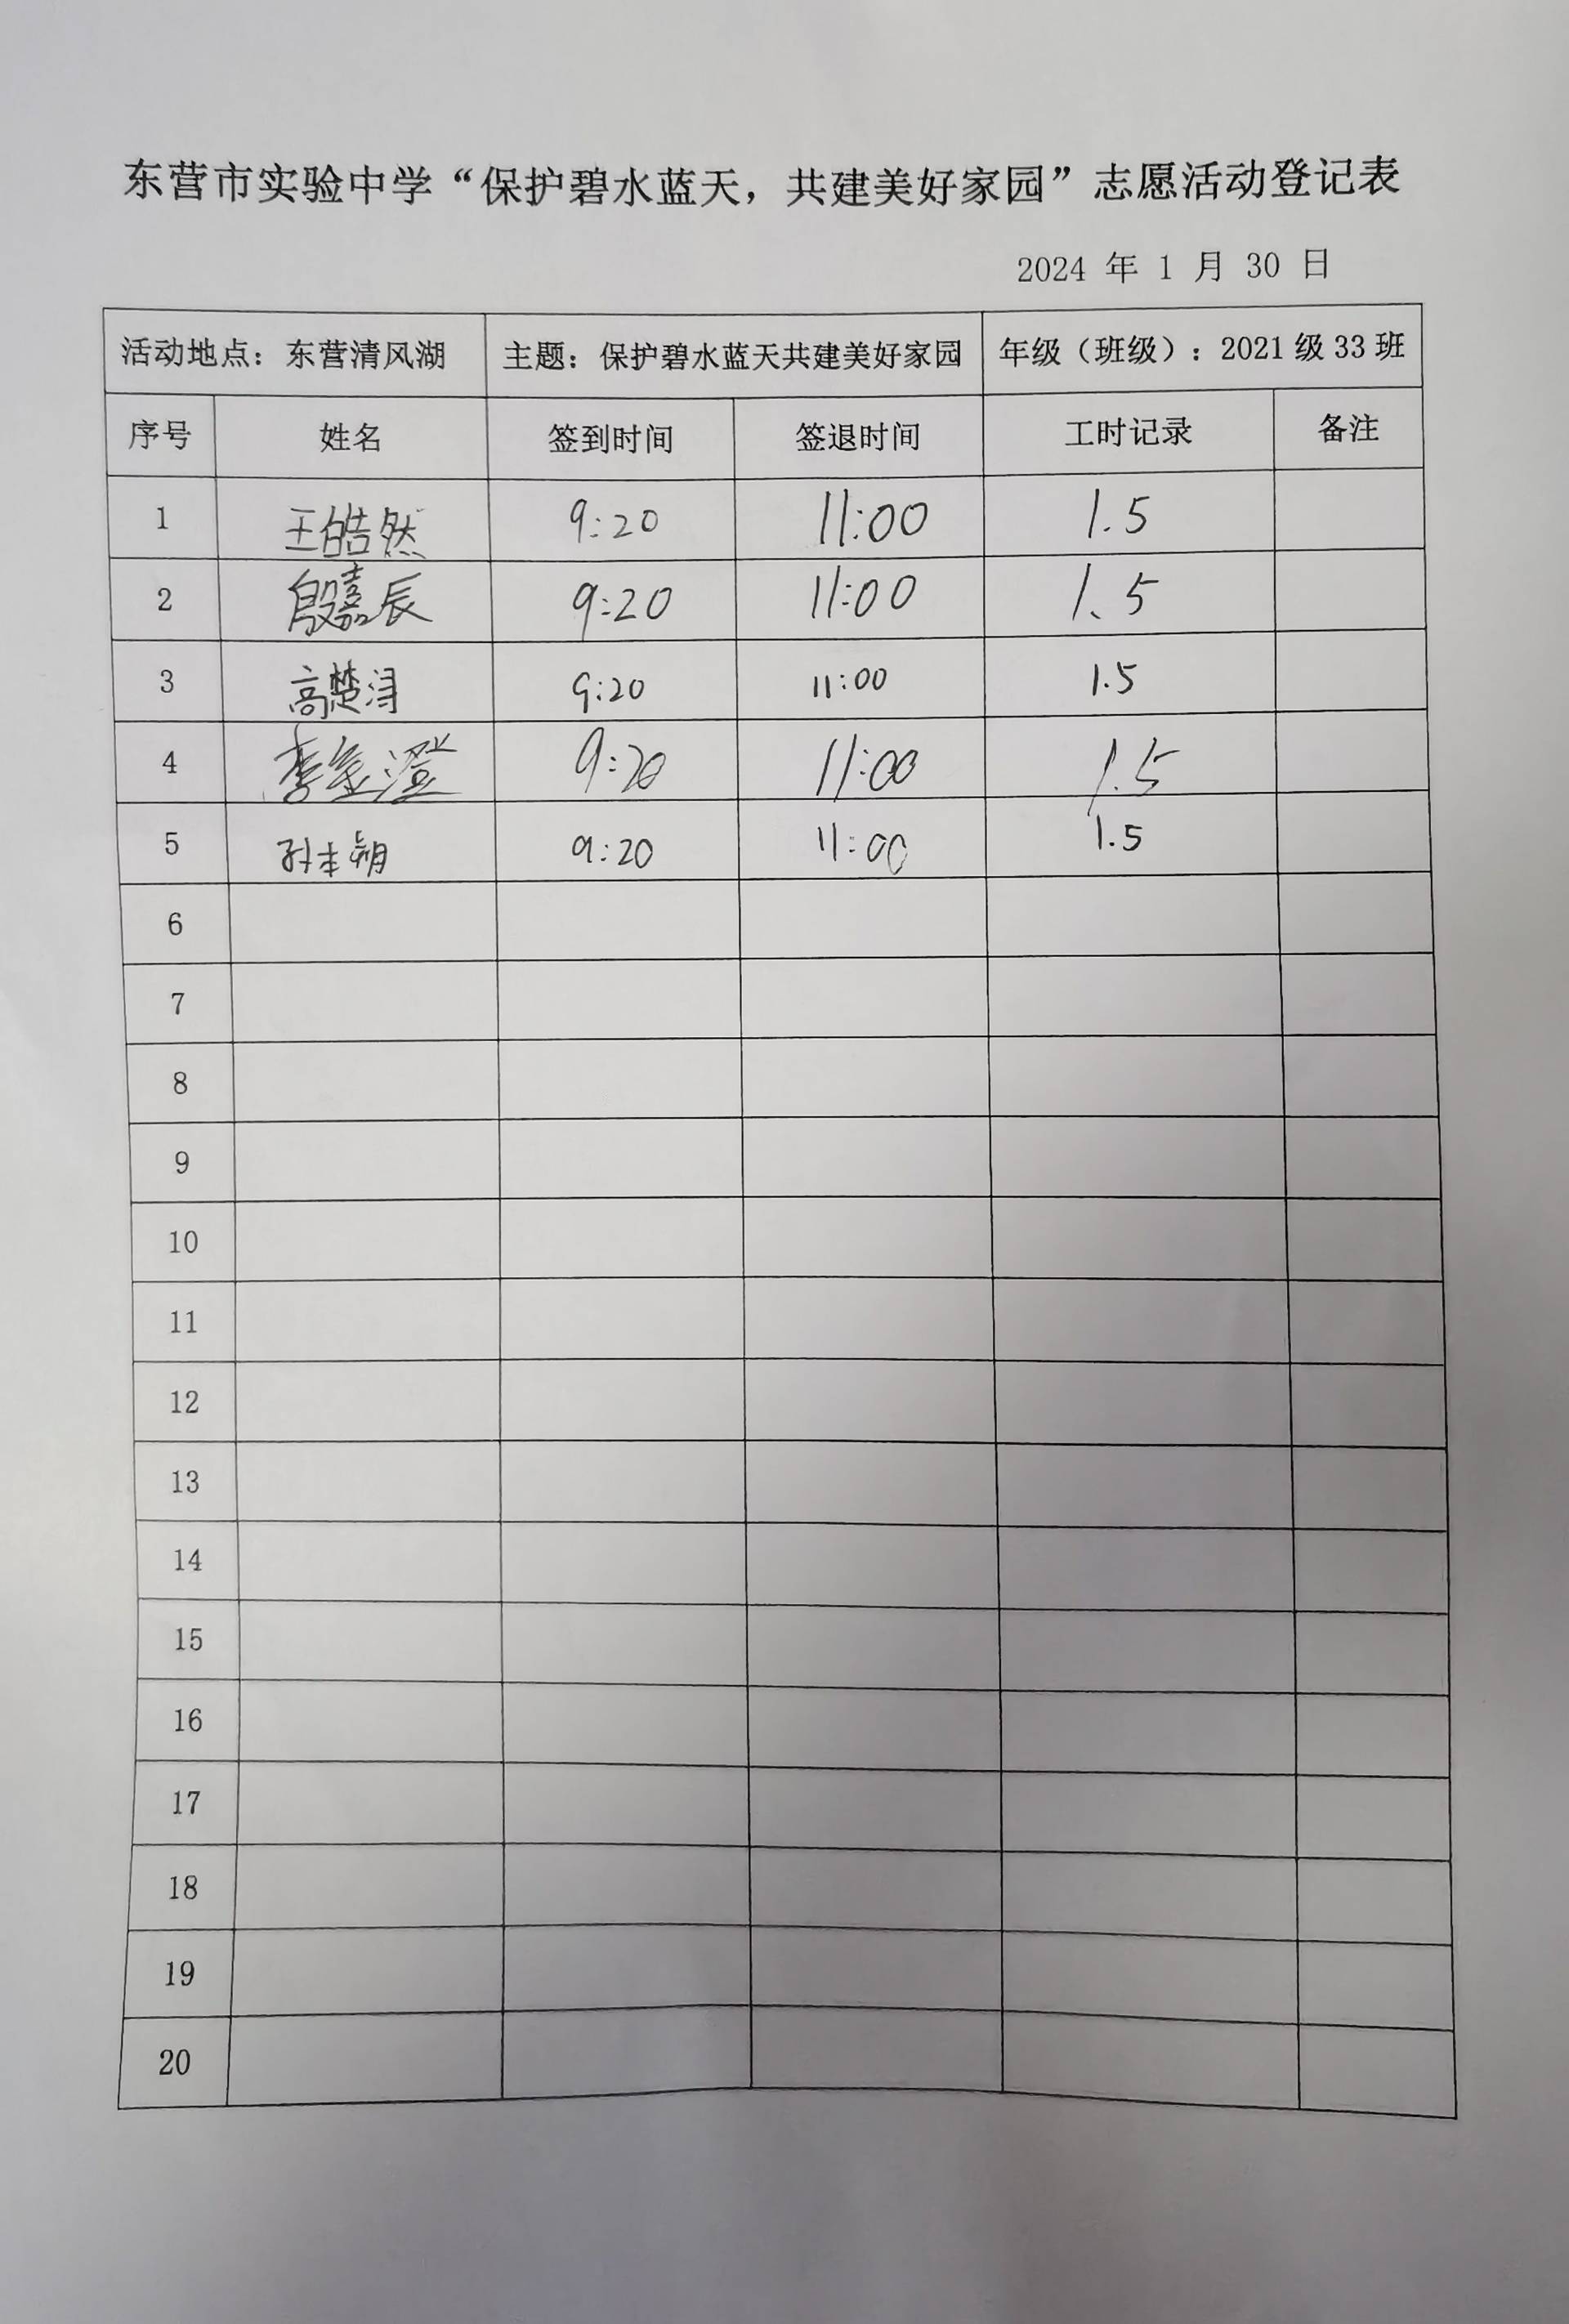 东营市实验中学“保护碧水蓝天，共建美好家园”志愿活动登记表
2024 年 1 月 30 日
活动地点：东营清风湖 主题：保护碧水蓝天共建美好家园 年级（班级）：2021 级 33 班
序号 姓名 签到时间 签退时间 工时记录 备注
1 王皓然 9:20 11:00 1.5
2 殷嘉辰 9:20 11:00 1.5
3 高楚浔 9:20 11:00 1.5
4 李奎澄 9:20 11:00 1.5
5 孙丰朔 9:20 11:00 1.5
6
7
8
9
10
11
12
13
14
15
16
17
18
19
20